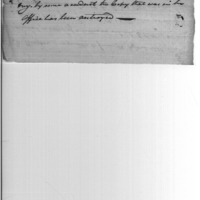 by some accident the Copy that was in his
Office has been destroyed